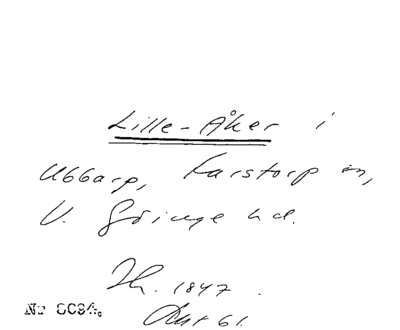 Lille-Åker i
Ubbarp, Karstorp sn,
V. Göinge hd.
Jh. 1847.
Akt 61.
Nr 8094.